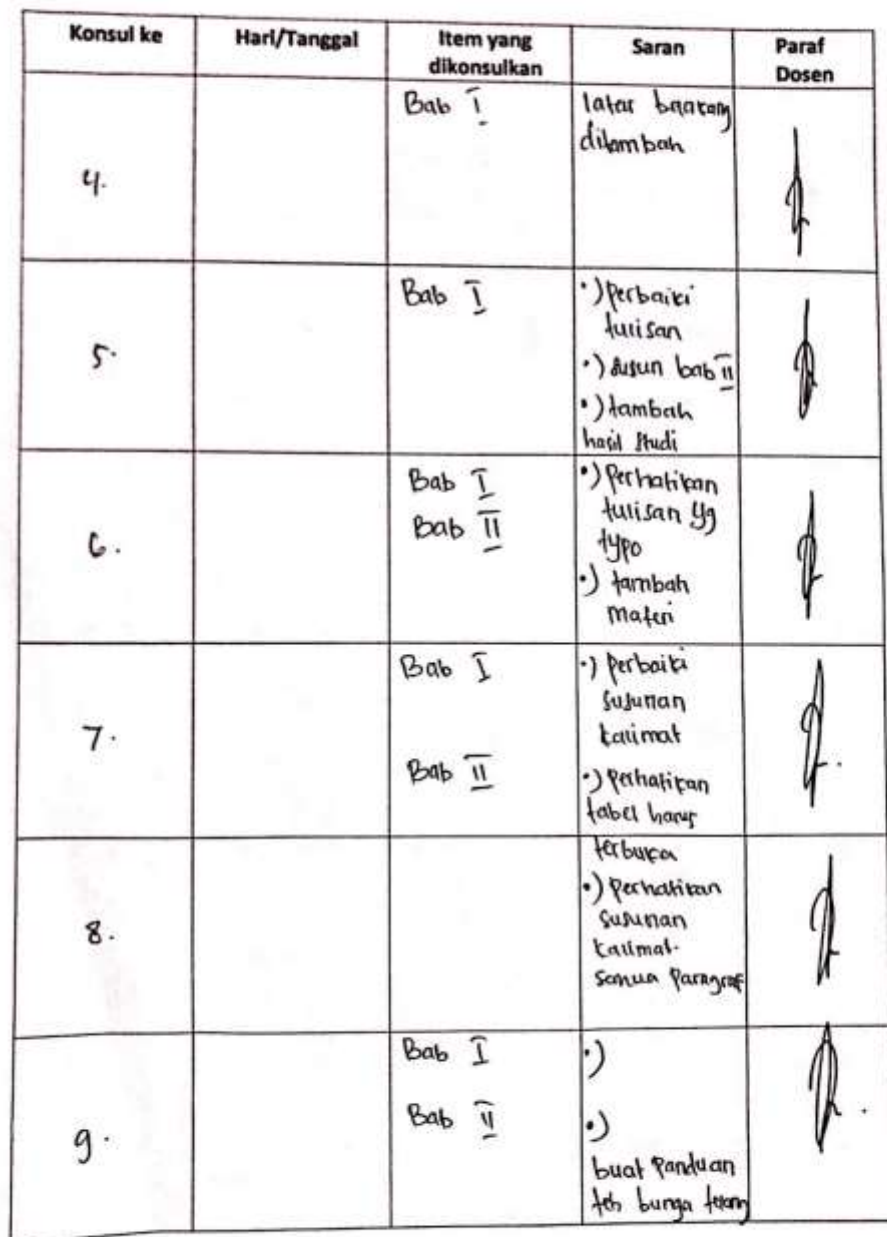 Konsul ke Hari/Tanggal Item yang Saran Paraf
dikonsulkan Dosen
4. Bab I latar belakang
ditambah
5. Bab I •) perbaiki
tulisan
•) susun bab II
•) tambah
hasil studi
6. Bab I •) perhatikan
Bab II tulisan yg
typo
•) tambah
materi
7. Bab I •) perbaiki
susunan
kalimat
Bab II •) perhatikan
tabel harus
terbuka
8. •) perhatikan
susunan
kalimat
semua paragraf
9. Bab I •)
Bab II •)
buat panduan
teh bunga telang